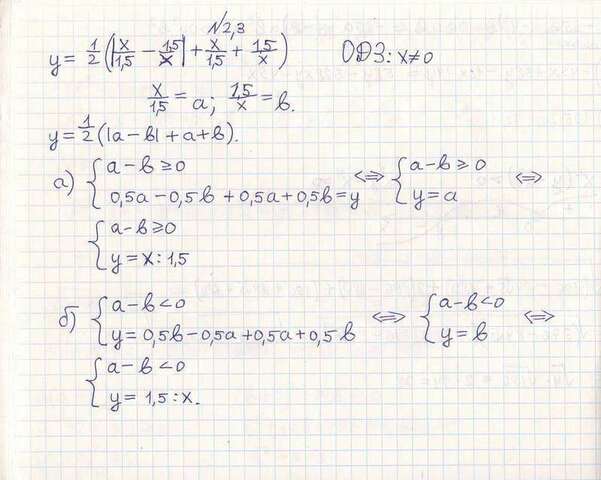 №2,3
y = 1/2 (|x/1,5 − 1,5/x| + x/1,5 + 1,5/x) ОДЗ: x≠0
x/1,5 = a; 1,5/x = b.
y = 1/2 (|a − b| + a + b).
а) { a − b ≥ 0 ⇔ { a − b ≥ 0 ⇔
0,5a − 0,5b + 0,5a + 0,5b = y y = a
{ a − b ≥ 0
y = x : 1,5
б) { a − b < 0 ⇔ { a − b < 0 ⇔
y = 0,5b − 0,5a + 0,5a + 0,5b y = b
{ a − b < 0
y = 1,5 : x.